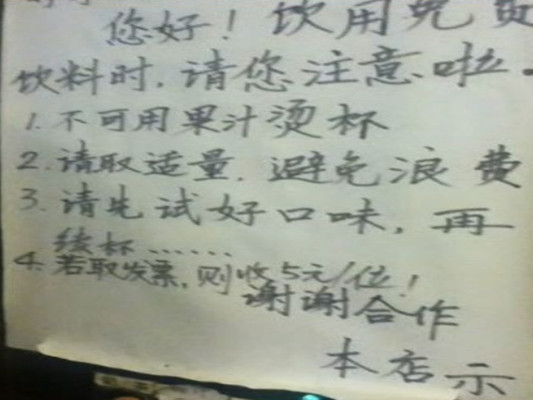 您好！饮用免费
饮料时，请您注意啦.
1. 不可用果汁烫杯
2. 请取适量，避免浪费
3. 请先试好口味，再
续杯……
4. 若取发票，则收5元/位！
谢谢合作
本店示